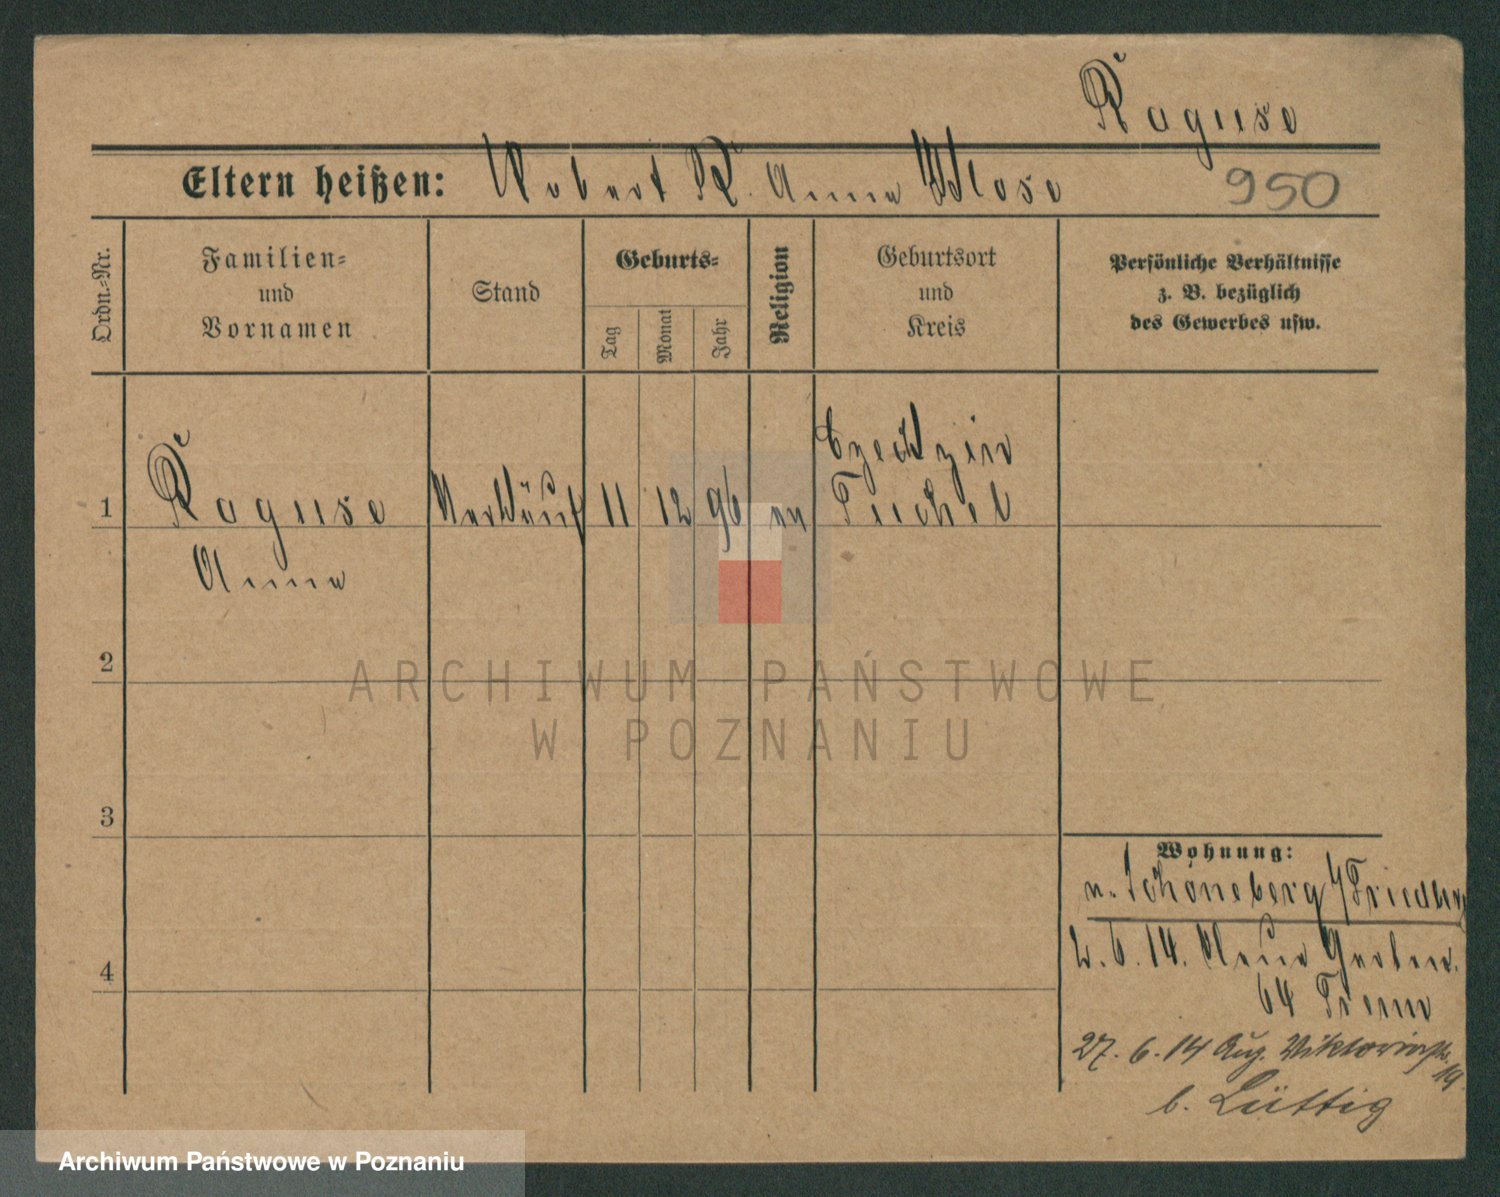 Raguse
Eltern heißen: Robert R. Anna Klose
950
Ordn.-Nr.
Familien-
und
Vornamen
Stand
Geburts-
Tag
Monat
Jahr
Religion
Geburtsort
und
Kreis
Persönliche Verhältnisse
z. B. bezüglich
des Gewerbes usw.
1
Raguse
Anna
Verkäuf
11
12
96
ev
Czechzin
Tuchel
2
3
4
Wohnung:
v. Schöneberg
2. 6. 14. Neue Garten.
64
27. 6. 14 Aug. Viktoriastr.
19.
b. Lüttig
ARCHIWUM PAŃSTWOWE
W POZNANIU
Archiwum Państwowe w Poznaniu